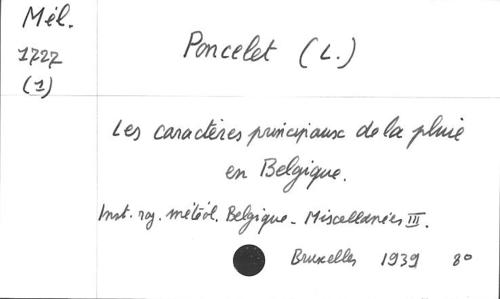 Mél.
1727
(1)
Poncelet (L.)
Les caractères principaux de la pluie
en Belgique.
Inst. roy. météol. Belgique - Miscellanées III.
Bruxelles 1939 8°